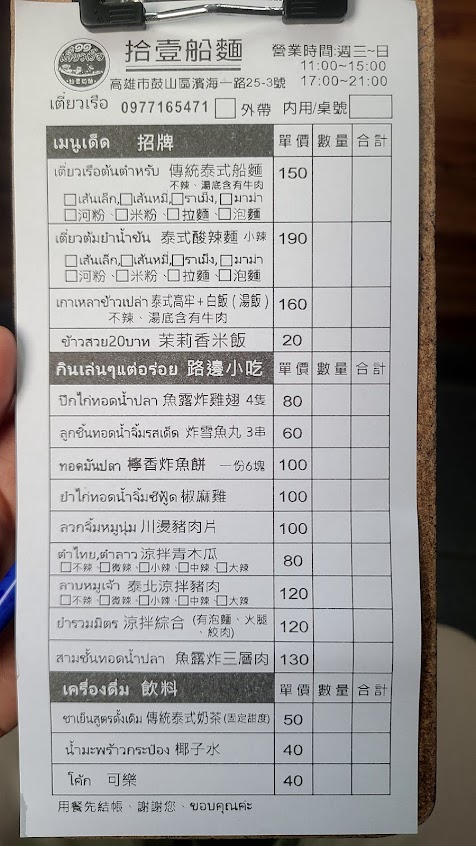 拾壹船麵
營業時間:週三~日
11:00~15:00
17:00~21:00
高雄市鼓山區濱海一路25-3號
เตี๋ยวเรือ 0977165471 □外帶 內用/桌號
เมนูเด็ด 招牌 單價 數量 合計
เตี๋ยวเรือต้นตำหรับ 傳統泰式船麵 150
不辣、湯底含有牛肉
□เส้นเล็ก,□เส้นหมี่,□ราเม็ง,□มาม่า
□河粉、□米粉、□拉麵、□泡麵
เตี๋ยวต้มยำน้ำข้น 泰式酸辣麵 小辣 190
□เส้นเล็ก,□เส้นหมี่,□ราเม็ง,□มาม่า
□河粉、□米粉、□拉麵、□泡麵
เกาเหลาข้าวเปล่า 泰式高牢+白飯(湯飯) 160
不辣、湯底含有牛肉
ข้าวสวย20บาท 茉莉香米飯 20
กินเล่นๆแต่อร่อย 路邊小吃 單價 數量 合計
ปีกไก่ทอดน้ำปลา 魚露炸雞翅 4隻 80
ลูกชิ้นทอดน้ำจิ้มรสเด็ด 炸雪魚丸 3串 60
ทอดมันปลา 檸香炸魚餅 一份6塊 100
ยำไก่ทอดน้ำจิ้มซีฟู้ด 椒麻雞 100
ลวกจิ้มหมูนุ่ม 川燙豬肉片 100
ตำไทย,ตำลาว 涼拌青木瓜 80
□不辣、□微辣、□小辣、□中辣、□大辣
ลาบหมูเจ้า 泰北涼拌豬肉 120
□不辣、□微辣、□小辣、□中辣、□大辣
ยำรวมมิตร 涼拌綜合 (有泡麵、火腿、絞肉) 120
สามชั้นทอดน้ำปลา 魚露炸三層肉 130
เครื่องดื่ม 飲料 單價 數量 合計
ชาเย็นสูตรดั้งเดิม 傳統泰式奶茶(固定甜度) 50
น้ำมะพร้าวกระป๋อง 椰子水 40
โค้ก 可樂 40
用餐先結帳、謝謝您、ขอบคุณค่ะ